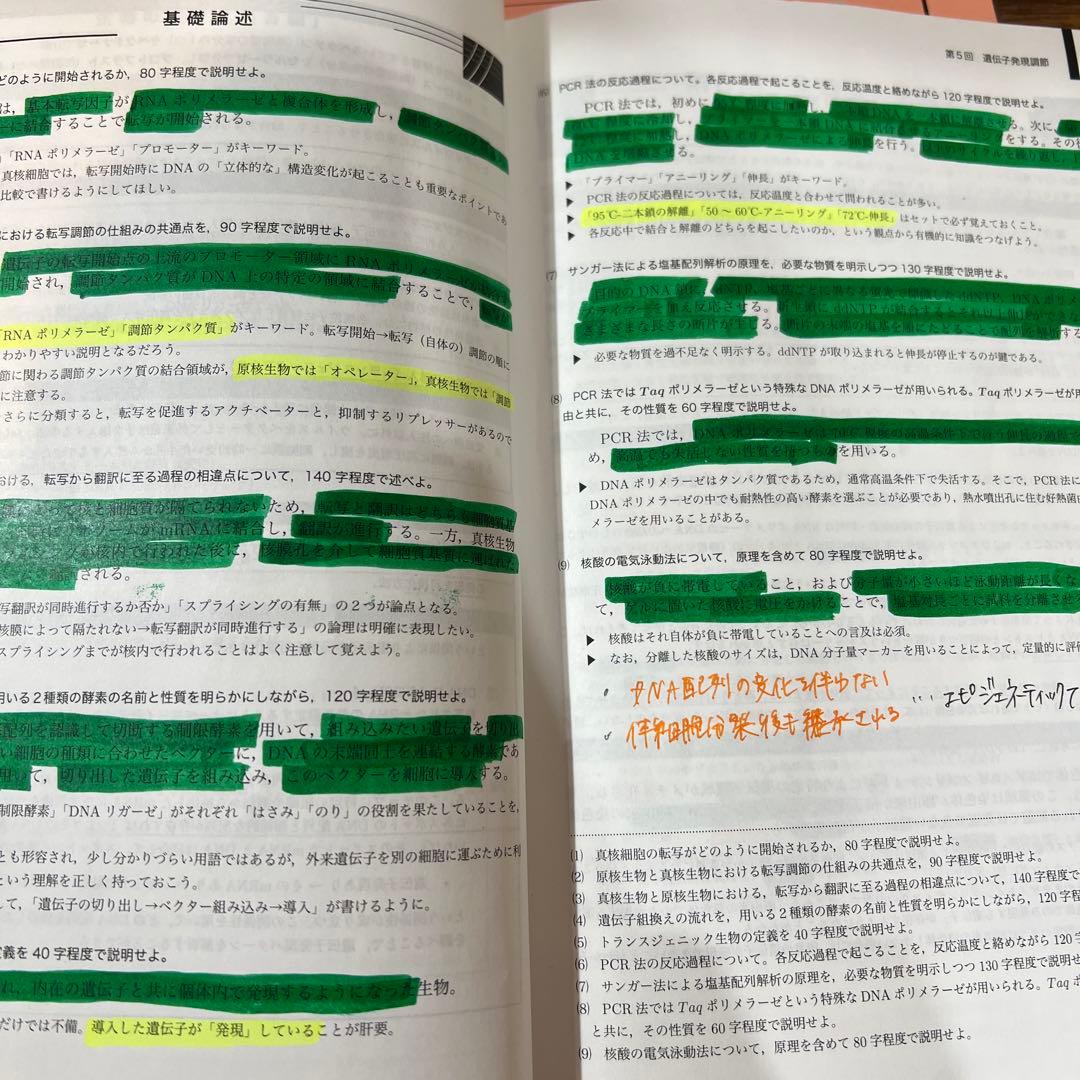 基礎論述
どのように開始されるか，80字程度で説明せよ。
は，基本転写因子がRNAポリメラーゼと複合体を形成し，調節タンパク
に結合することで転写が開始される。
「RNAポリメラーゼ」「プロモーター」がキーワード。
真核細胞では，転写開始時にDNAの「立体的な」構造変化が起こることも重要なポイントであ
比較で書けるようにしてほしい。
における転写調節の仕組みの共通点を，90字程度で説明せよ。
遺伝子の転写開始点の上流のプロモーター領域にRNAポリメラーゼが
開始され，調節タンパク質がDNA上の特定の領域に結合することで，
「RNAポリメラーゼ」「調節タンパク質」がキーワード。転写開始→転写（自体の）調節の順に
わかりやすい説明となるだろう。
節に関わる調節タンパク質の結合領域が，原核生物では「オペレーター」，真核生物では「調節
に注意する。
さらに分類すると，転写を促進するアクチベーターと，抑制するリプレッサーがあるので
おける，転写から翻訳に至る過程の相違点について，140字程度で述べよ。
核と細胞質が隔てられないため，転写と翻訳はどちらも細胞質基
がmRNAに結合し，翻訳が進行する。一方，真核生物
が核内で行われた後に，核膜孔を介して細胞質基質に運ばれ
される。
写翻訳が同時進行するか否か」「スプライシングの有無」の2つが論点となる。
核膜によって隔たれない→転写翻訳が同時進行する」の論理は明確に表現したい。
スプライシングまでが核内で行われることはよく注意して覚えよう。
用いる2種類の酵素の名前と性質を明らかにしながら，120字程度で説明せよ。
配列を認識して切断する制限酵素を用いて，組み込みたい遺伝子を切り出
い細胞の種類に合わせたベクターに，DNAの末端同士を連結する酵素であ
用いて，切り出した遺伝子を組み込み，このベクターを細胞に導入する。
制限酵素」「DNAリガーゼ」がそれぞれ「はさみ」「のり」の役割を果たしていることを，
とも形容され，少し分かりづらい用語ではあるが，外来遺伝子を別の細胞に運ぶために利
という理解を正しく持っておこう。
して，「遺伝子の切り出し→ベクター組み込み→導入」が書けるように。
定義を40字程度で説明せよ。
れ，内在の遺伝子と共に個体内で発現するようになった生物。
だけでは不備。導入した遺伝子が「発現」していることが肝要。
第5回 遺伝子発現調節
(6) PCR法の反応過程について。各反応過程で起こることを，反応温度と絡めながら120字程度で説明せよ。
PCR法では，初めに
程度に冷却し，一本鎖DNAに結合するアニーリングをする。次に，
程度に加熱し，DNAポリメラーゼによる伸長を行う。以上のサイクルを繰り返し，
DNAを増幅させる。
▶ 「プライマー」「アニーリング」「伸長」がキーワード。
▶ PCR法の反応過程については，反応温度と合わせて問われることが多い。
▶ 「95℃-二本鎖の解離」「50～60℃-アニーリング」「72℃-伸長」はセットで必ず覚えておくこと。
▶ 各反応中で結合と解離のどちらを起こしたいのか，という観点から有機的に知識をつなげよう。
(7) サンガー法による塩基配列解析の原理を，必要な物質を明示しつつ130字程度で説明せよ。
目的のDNA鎖に，dNTP，塩基ごとに異なる蛍光で標識したddNTP，DNAポリメ
プライマーを加え反応させる。
さまざまな長さの断片が生じる。断片の末端の塩基を順にたどることで配列を
▶ 必要な物質を過不足なく明示する。ddNTPが取り込まれると伸長が停止するのが鍵である。
(8) PCR法ではTaqポリメラーゼという特殊なDNAポリメラーゼが用いられる。Taqポリメラーゼが用
由と共に，その性質を60字程度で説明せよ。
PCR法では，DNAポリメラーゼは70℃程度の高温条件下で行う伸長の過程で
め，高温でも失活しない性質を持つものを用いる。
▶ DNAポリメラーゼはタンパク質であるため，通常高温条件下で失活する。そこで，PCR法に
DNAポリメラーゼの中でも耐熱性の高い酵素を選ぶことが必要であり，熱水噴出孔に住む好熱菌
メラーゼを用いることがある。
(9) 核酸の電気泳動法について，原理を含めて80字程度で説明せよ。
核酸が負に帯電していること，および分子量が小さいほど泳動距離が長くな
て，ゲルに置いた核酸に電圧をかけることで，塩基対長ごとに試料を分離させる
▶ 核酸はそれ自体が負に帯電していることへの言及は必須。
▶ なお，分離した核酸のサイズは，DNA分子量マーカーを用いることによって，定量的に評価
・DNA配列の変化を伴わない
・体細胞分裂後も継承される
…エピジェネティックで
(1) 真核細胞の転写がどのように開始されるか，80字程度で説明せよ。
(2) 原核生物と真核生物における転写調節の仕組みの共通点を，90字程度で説明せよ。
(3) 真核生物と原核生物における，転写から翻訳に至る過程の相違点について，140字程度で
(4) 遺伝子組換えの流れを，用いる2種類の酵素の名前と性質を明らかにしながら，120字程
(5) トランスジェニック生物の定義を40字程度で説明せよ。
(6) PCR法の反応過程について。各反応過程で起こることを，反応温度と絡めながら120字
(7) サンガー法による塩基配列解析の原理を，必要な物質を明示しつつ130字程度で説明せ
(8) PCR法ではTaqポリメラーゼという特殊なDNAポリメラーゼが用いられる。Taqポ
と共に，その性質を60字程度で説明せよ。
(9) 核酸の電気泳動法について，原理を含めて80字程度で説明せよ。